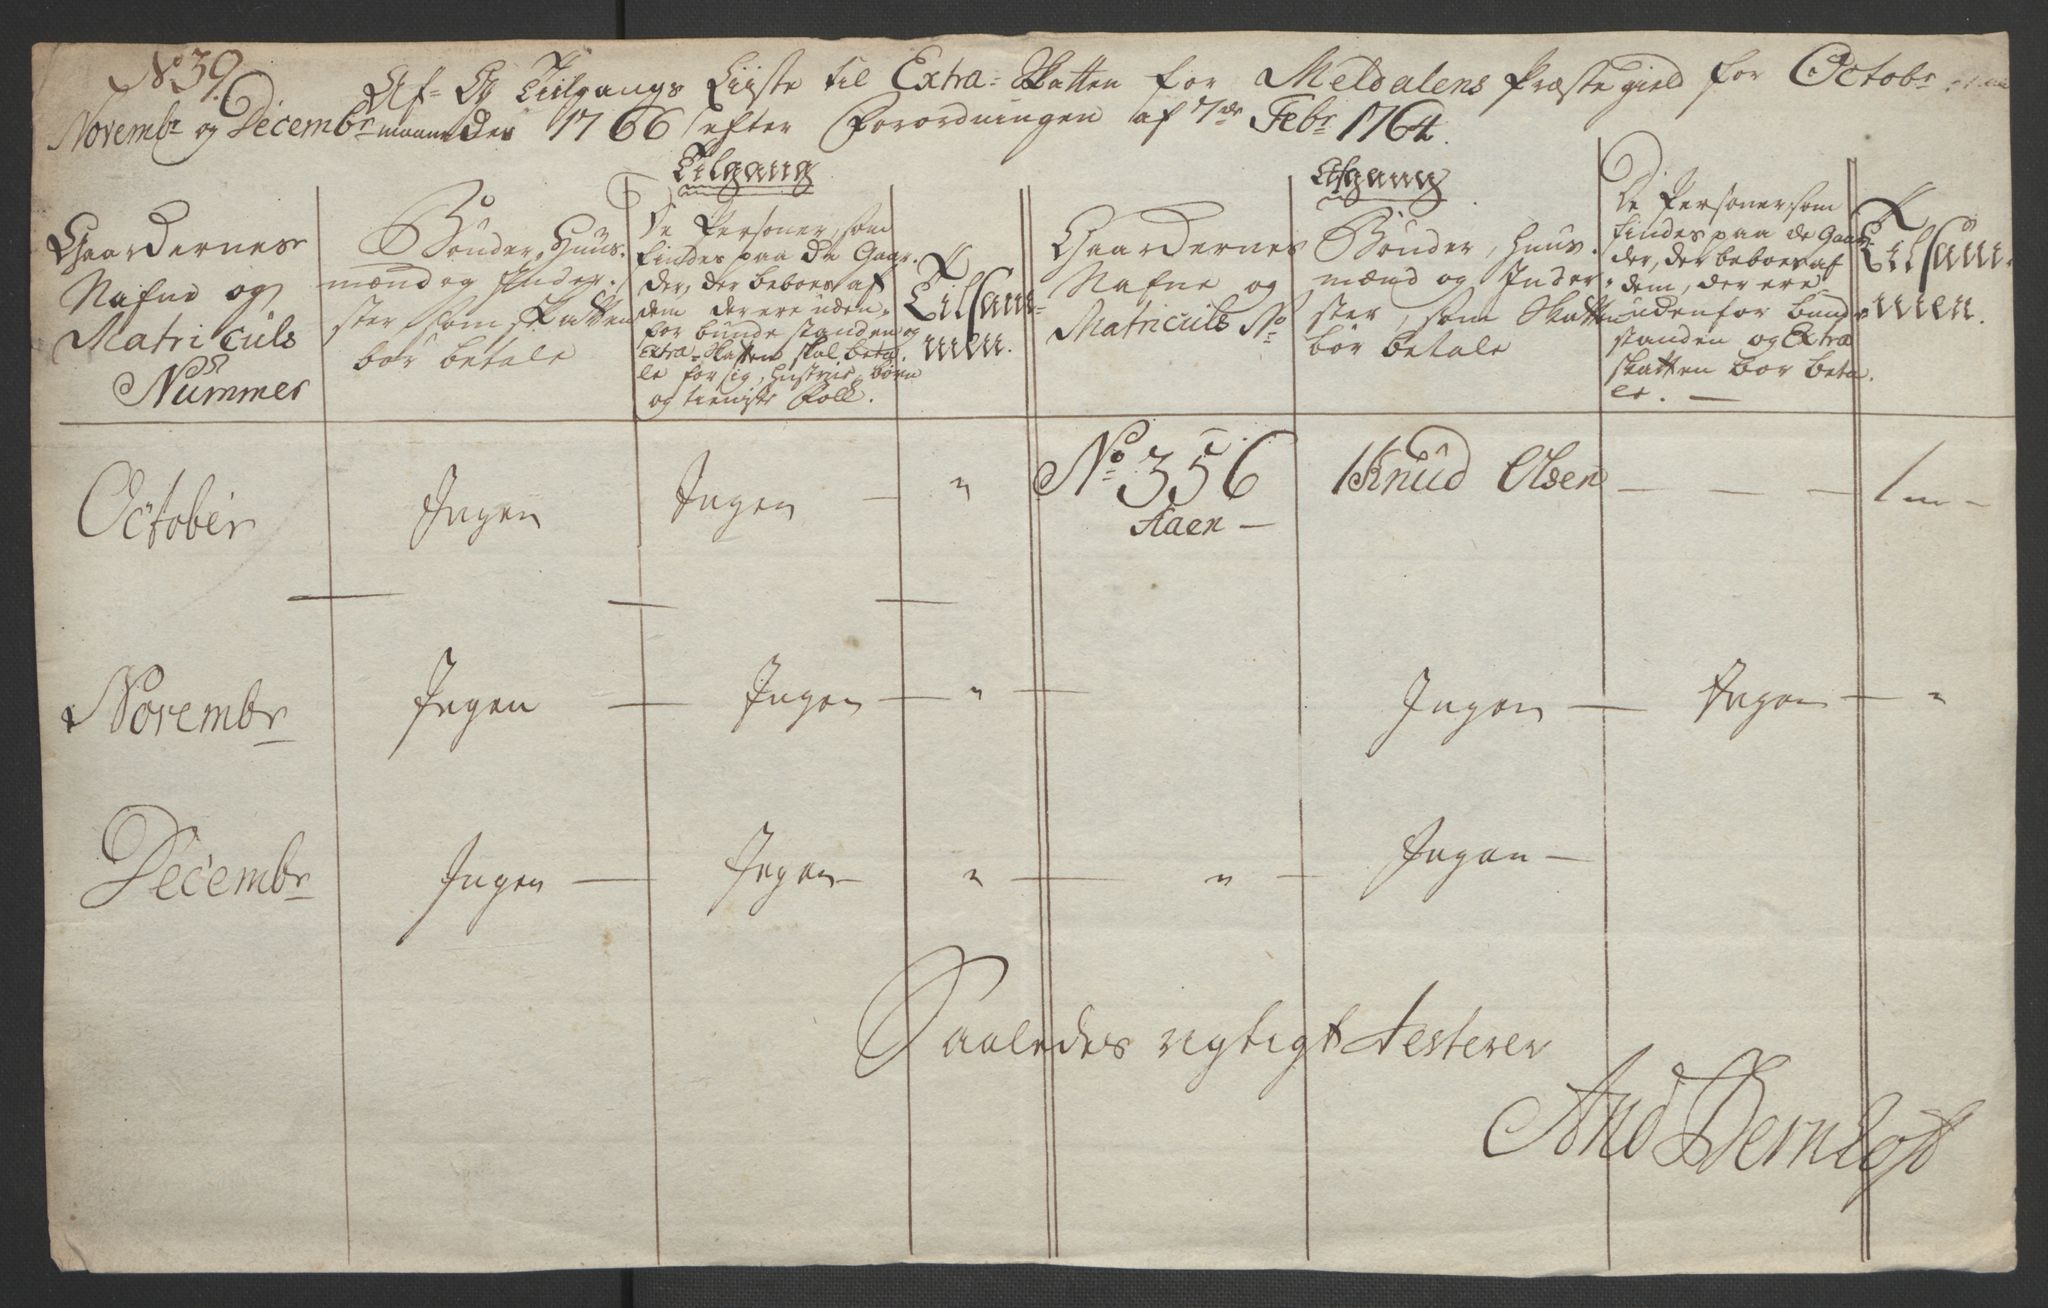 No 39.
Af- Og Tilgangs Liste til Extra-Skatten for Meldalens Præstegield for Octobr
Novembr og Decembr maaneder 1766 efter Forordningen af 7de Febr 1764.
Tilgang
Gaardernes
Nafne og
Matriculs
Nummer
Bønder, Huus-
mænd og Inder-
ster, som skatten
bør betale
De Personer, som
findes paa de Gaar-
der, der beboes af
dem der ere uden-
for bunde standen og
Extra-Skatten skal beta-
le for sig, hustrue, børn
og tieniste Folk.
Tilsam-
men.
Afgang
Gaardernes
Nafne og
Matriculs No
Bønder, Huus-
mænd og Inder-
ster, som Skatten
bør betale
De Personer, som
findes paa de Gaar-
der, der beboes af
dem, der ere
udenfor bunde
standen og Extra
skatten bør beta-
er. —
Tilsam-
men.
October Ingen Ingen — " No 356 1 Knud Olsen — — — 1 —
Aaen —
Novembr Ingen — Ingen — " — Ingen — Ingen — "
Decembr Ingen — Ingen — " — " — Ingen —
Saaledes rigtigt Testerer
And